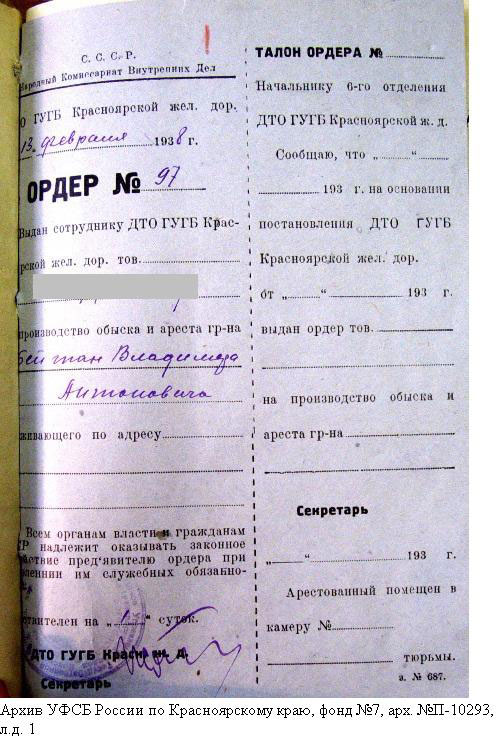 С. С. С. Р.
Народный Комиссариат Внутренних Дел
О ГУГБ Красноярской жел. дор.
13 февраля 1938 г.
ОРДЕР № 97
Выдан сотруднику ДТО ГУГБ Крас-
рской жел. дор. тов.
производство обыска и ареста гр-на
Бейтман Владимира
Антоновича
живающего по адресу
Всем органам власти и гражданам
СР надлежит оказывать законное
ствие пред'явителю ордера при
лнении им служебных обязанно-
ствителен на „1“ суток.
ДТО ГУГБ Красн. ж. д.
Секретарь
ТАЛОН ОРДЕРА №
Начальнику 6-го отделения
ДТО ГУГБ Красноярской ж. д.
Сообщаю, что „ “
193 г. на основании
постановления ДТО ГУГБ
Красноярской жел. дор.
от „ “ 193 г.
выдан ордер тов.
на производство обыска и
ареста гр-на
Секретарь
„ “ 193 г.
Арестованный помещен в
камеру №
тюрьмы.
з. № 687.
Архив УФСБ России по Красноярскому краю, фонд №7, арх. №П-10293,
л.д. 1